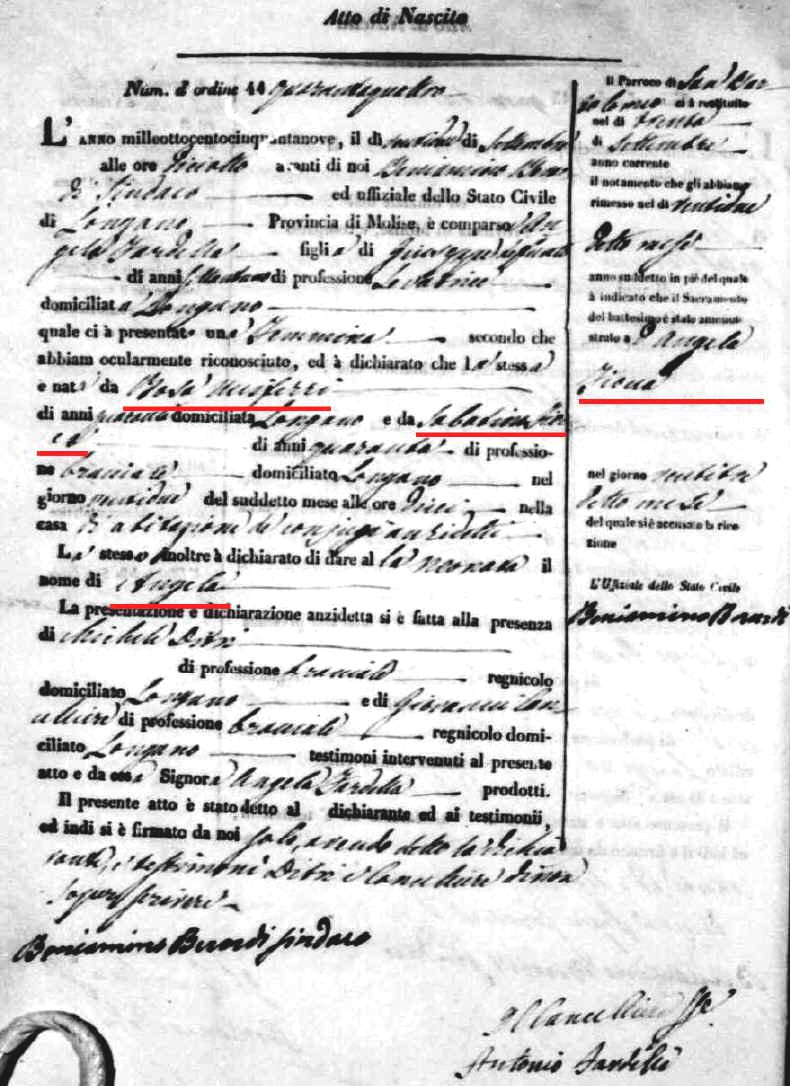 Atto di Nascita
Num. d'ordine 44 Quarantaquattro
L'ANNO milleottocentocinquantanove, il dì ventinove di Settembre
alle ore avanti di noi Beniamino
Sindaco ed uffiziale dello Stato Civile
di Longano Provincia di Molise, è comparsa An
gela Tardella figlia di Giuseppe
di anni di professione Levatrice
domiciliata Longano
quale ci à presentato una Femmina secondo che
abbiam ocularmente riconosciuto, ed à dichiarato che la stessa
è nata da Rosa
di anni domiciliata Longano e da Sabatino
di anni quaranta di professio-
ne bracciale domiciliato Longano nel
giorno ventinove del suddetto mese alle ore dieci nella
casa di abitazione de' conjugi anzidetti
La stessa inoltre à dichiarato di dare al la neonata il
nome di Angela
La presentazione e dichiarazione anzidetta si è fatta alla presenza
di Michele Ditri
di professione bracciale regnicolo
domiciliato Longano e di Giovanni Can
celliere di professione bracciale regnicolo domi-
ciliato Longano testimoni intervenuti al presente
atto e da essa Signora Angela Tardella prodotti.
Il presente atto è stato detto al dichiarante ed ai testimonii,
ed indi si è firmato da noi solo, avendo detto la dichia
rante, e testimoni Ditri e Cancelliere di non
saper scrivere
Beniamino Berardi Sindaco
Il Cancelliere
Antonio
Il Parroco di San Bar
tolomeo ci à restituito
nel dì trenta
di Settembre
anno corrente
il notamento che gli abbiamo
rimesso nel dì ventinove
detto mese
anno suddetto in piè del quale
à indicato che il Sacramento
del battesimo è stato ammini-
strato a D'Angela
nel giorno
detto mese
del quale si è accusato la rice-
zione
L'Uffiziale dello Stato Civile
Beniamino Berardi